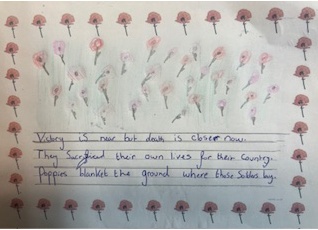 Victory is near but death is closer now.
They Sacrificed their own lives for their Country.
Poppies blanket the ground where those lay.